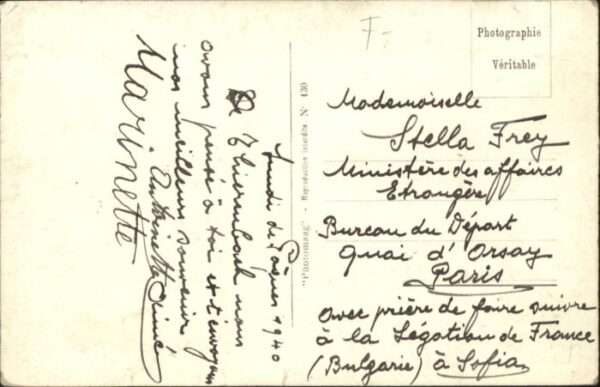 Lundi de Pâques 1940
De Thierenbach nous
avons pensé à toi et t'envoyons
nos meilleurs souvenir
Antoinette
Marinette
"Photomang" - Reproduction interdite N° 430
F-
Photographie
Véritable
Mademoiselle
Stella Frey
Ministère des affaires
Etrangère
Bureau du Départ
Quai d'Orsay
Paris
avec prière de faire suivre
à la Légation de France
(Bulgarie) à Sofia